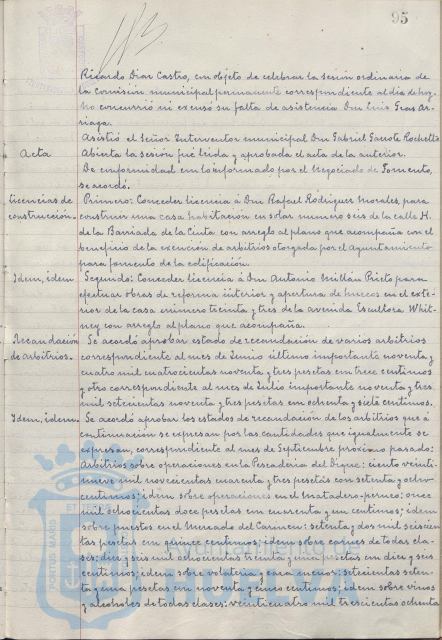 95
Ricardo Diaz Castro, con objeto de celebrar la sesión ordinaria de
la Comisión municipal permanente correspondiente al día de hoy.
No concurrió ni excusó su falta de asistencia Don Luis Gras Ar-
riaga.
Asistió el Señor Interventor municipal Don Gabriel
Acta
Abierta la sesión fué leída y aprobada el acta de la anterior.
De conformidad con lo informado por el Negociado de Fomento,
se acordó.
Licencias de construcción.
Primero: Conceder licencia á Don Rafael Rodriguez Morales, para
construir una casa habitación en solar número seis de la calle H.
de la Barriada de la Cinta con arreglo al plano que acompaña con el
beneficio de la exención de arbitrios otorgada por el Ayuntamiento
para fomento de la edificación.
Idem, idem
Segundo: Conceder licencia á Don Antonio Millán Prieto para
efectuar obras de reforma interior y apertura de huecos en el exte-
rior de la casa número treinta y tres de la avenida Escultora Whit-
ney con arreglo al plano que acompaña.
Recaudación de arbitrios.
Se acordó aprobar estado de recaudación de varios arbitrios
correspondiente al mes de Junio último importante noventa y
cuatro mil cuatrocientas noventa y tres pesetas con trece centimos
y otro correspondiente al mes de Julio importante noventa y tres
mil setecientas noventa y tres pesetas con ochenta y siete centimos.
Idem, idem.
Se acordó aprobar los estados de recaudación de los arbitrios que á
continuación se expresan por las cantidades que igualmente se
expresan, correspondiente al mes de Septiembre próximo pasado:
Arbitrios sobre operaciones en la Pescaderia del Dique: ciento veinti-
nueve mil novecientas cuarenta y tres pesetas con setenta y ocho
centimos; idem sobre operaciones en el Matadero-perneo: once
mil ochocientas doce pesetas con cuarenta y un centimos; idem
sobre puestos en el Mercado del Carmen: setenta y dos mil seiscien-
tas pesetas con quince centimos; idem sobre carnes de todas cla-
ses: diez y seis mil ochocientas treinta y una pesetas con diez y seis
centimos; idem sobre volateria y caza menor: setecientas seten-
ta y una pesetas con noventa y cinco centimos; idem sobre vinos
y alcoholes de todas clases: veinticuatro mil trescientas ochenta
PORTUS MARIS